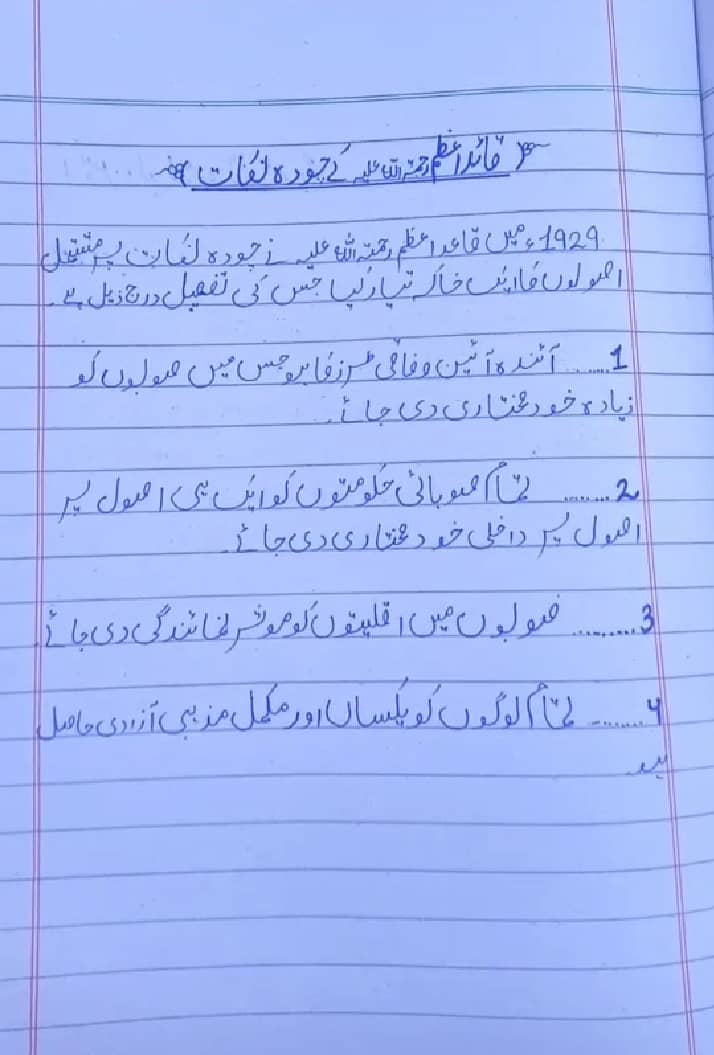 قائداعظم رحمتہ اللہ علیہ کے چودہ نکات
1929ء میں قاعداعظم رحمتہ اللہ علیہ نے چودہ نکات پر مشتمل
اصولوں کا ایک خاکہ تیار کیا جس کی تفصیل درج ذیل ہے۔
1....... آئندہ آئین وفاقی طرز کا ہو جس میں صوبوں کو
زیادہ خود مختاری دی جائے۔
2........ تمام صوبائی حکومتوں کو ایک ہی اصول پر
اصول پر داخلی خود مختاری دی جائے۔
3.......... صوبوں میں اقلیتوں کو موثر نمائندگی دی جائے
4........ تمام لوگوں کو یکساں اور مکمل مذہبی آزادی حاصل
ہو۔